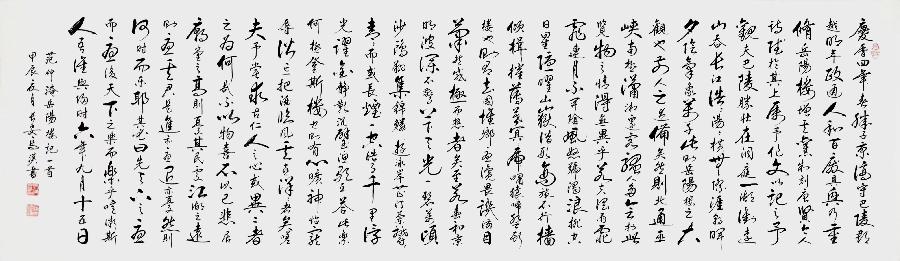 慶曆四年春滕子京謫守巴陵郡
越明年政通人和百廢具興乃重
脩岳陽樓增其舊制刻唐賢今人
詩賦於其上屬予作文以記之予
觀夫巴陵勝狀在洞庭一湖銜遠
山吞長江浩浩湯湯橫無際涯朝暉
夕陰氣象萬千此則岳陽樓之大
觀也前人之述備矣然則北通巫
峽南極瀟湘遷客騷人多會於此
覽物之情得無異乎若夫霪雨霏
霏連月不開陰風怒號濁浪排空
日星隱曜山嶽潛形商旅不行檣
傾楫摧薄暮冥冥虎嘯猿啼登斯
樓也則有去國懷鄉憂讒畏譏滿目
蕭然感極而悲者矣至若春和景
明波瀾不驚上下天光一碧萬頃
沙鷗翔集錦鱗游泳岸芷汀蘭郁郁
青青而或長煙一空皓月千里浮
光躍金靜影沉璧漁歌互答此樂
何極登斯樓也則有心曠神怡寵
辱偕忘把酒臨風其喜洋洋者矣嗟
夫予嘗求古仁人之心或異二者
之為何哉不以物喜不以己悲居
廟堂之高則憂其民處江湖之遠
則憂其君是進亦憂退亦憂然則
何時而樂耶其必曰先天下之憂
而憂後天下之樂而樂乎噫微斯
人吾誰與歸時六年九月十五日
范仲淹岳陽樓記一首
甲辰 月 長安 書